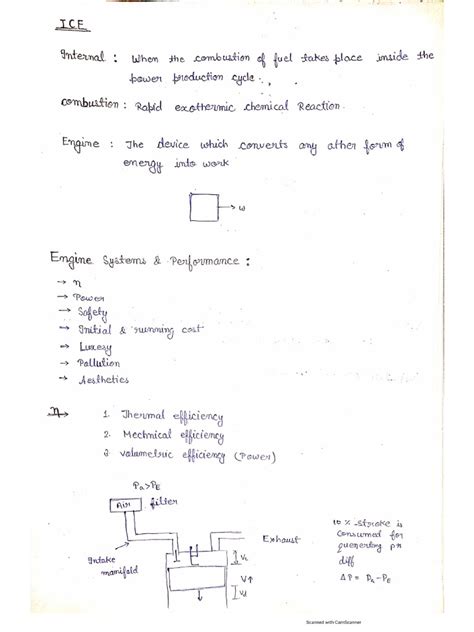 ICE
Internal : When the combustion of fuel takes place inside the
power production cycle.
combustion : Rapid exothermic chemical Reaction.
Engine : The device which converts any other form of
energy into work
→ W
Engine Systems & Performance :
→ η
→ Power
→ Safety
→ Initial & running cost
→ Luxesy
→ Pollution
→ Aesthetics
η→ 1. Thermal efficiency
2. Mechnical efficiency
3. volumetric efficiency (Power)
Pa>PE
Air filter
Intake
manifold
Exhaust
V↑
10% stroke is
Consumed for
diff
ΔP = Pa - PE
Scanned with CamScanner